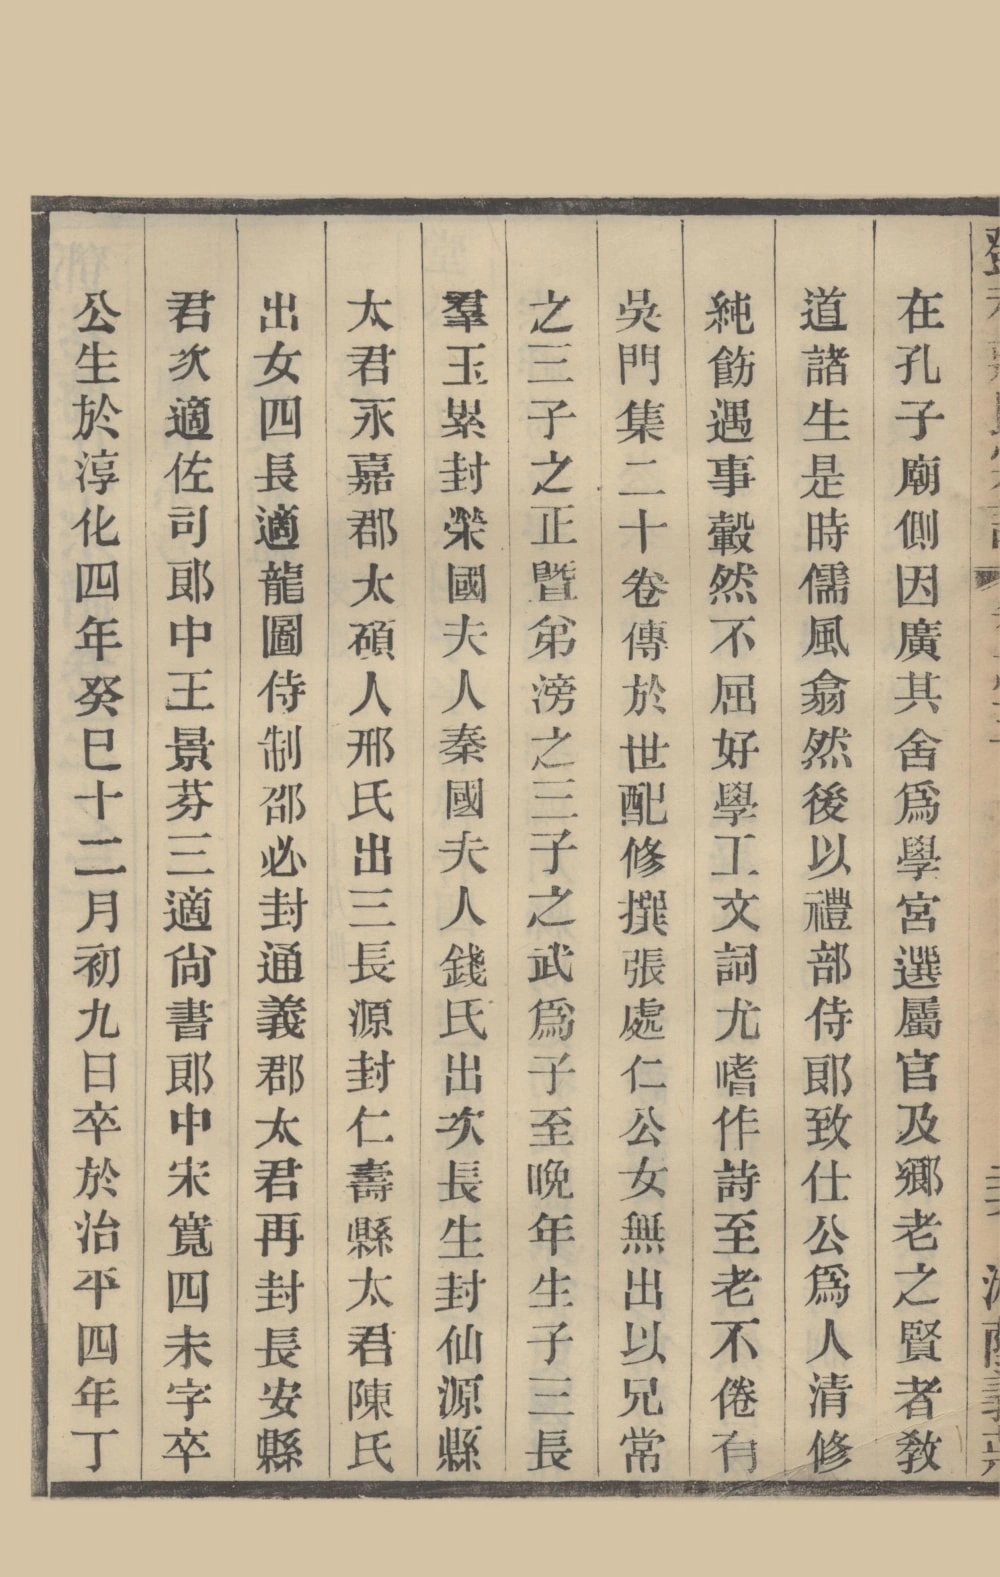 在孔子廟側因廣其舍爲學宮選屬官及鄉老之賢者敎
道諸生是時儒風翕然後以禮部侍郞致仕公爲人清修
純飭遇事轂然不屈好學工文詞尤嗜作詩至老不倦有
吳門集二十卷傳於世配修撰張處仁公女無出以兄常
之三子之正暨弟滂之三子之武爲子至晚年生子三長
羣玉累封榮國夫人秦國夫人錢氏出次長生封仙源縣
太君永嘉郡太碩人邢氏出三長源封仁壽縣太君陳氏
出女四長適龍圖侍制邵必封通義郡太君再封長安縣
君次適佐司郞中王景芬三適尙書郞中宋寬四未字卒
公生於淳化四年癸巳十二月初九日卒於治平四年丁